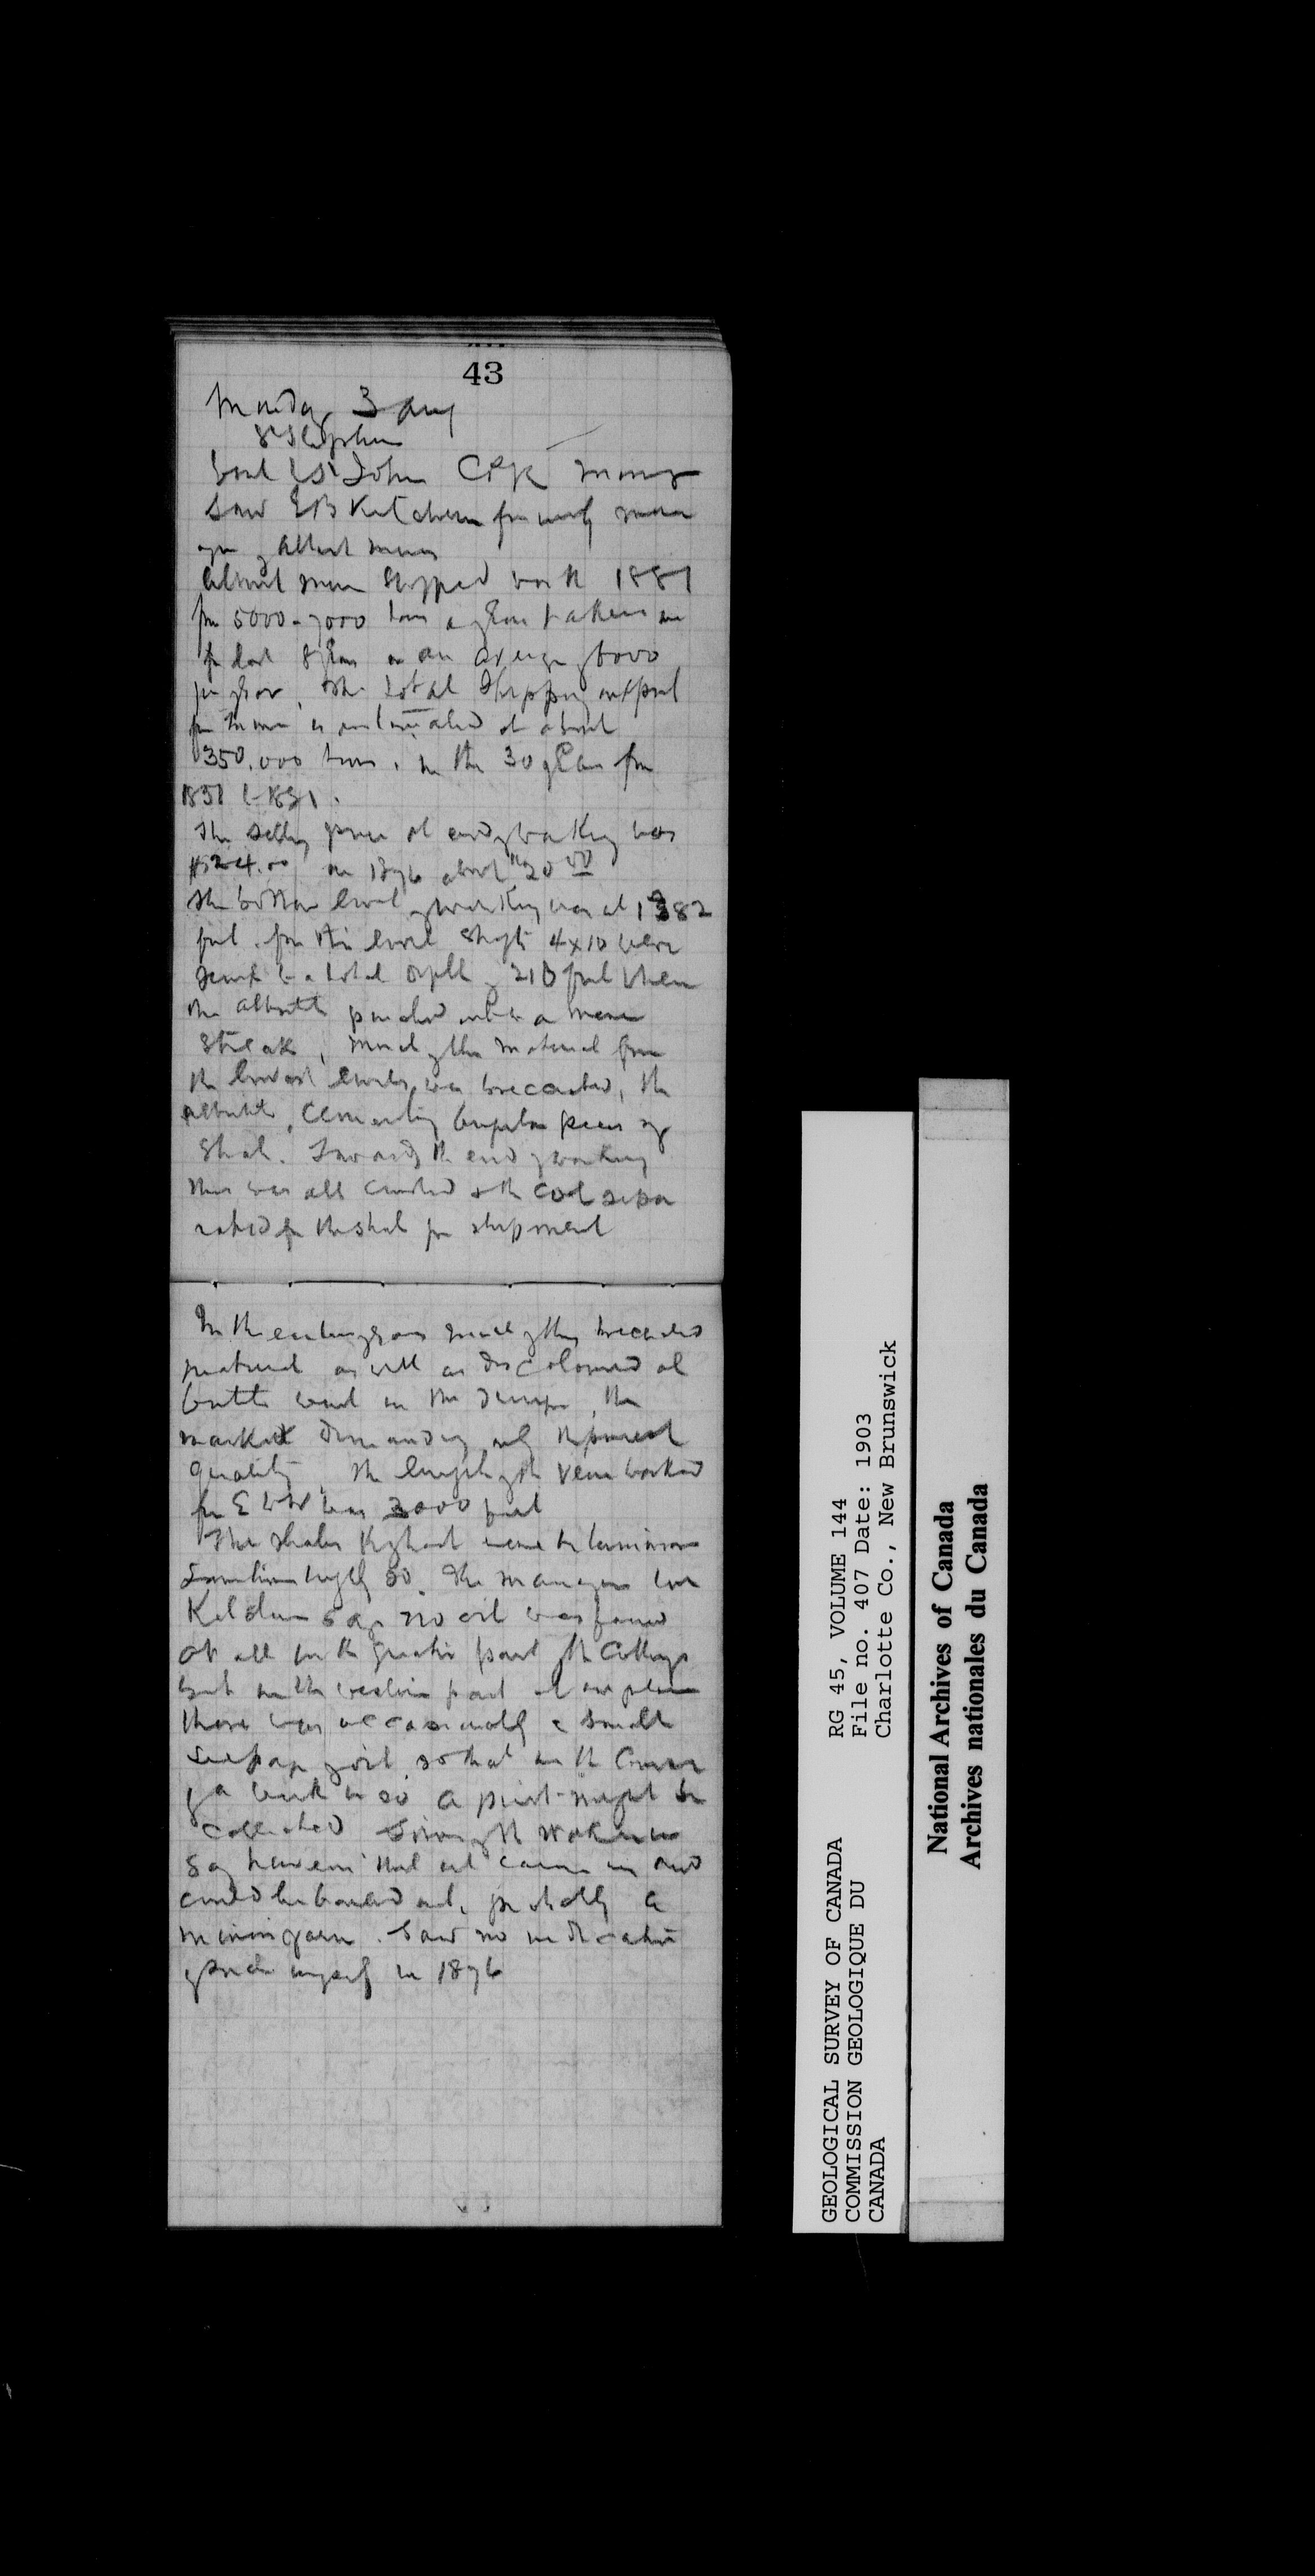 43
Monday 3 Aug
St Stephen
to St John CPR
Saw EB Ketchum formerly mana
ger of Albert mines
Albert mine stopped work 1881
for 5000-7000 tons a year taken
for last 8 years or an average 6000
per year, The total shipping output
for mine is estimated at about
350,000 tons, in the 30 years from
1851 to 1881.
The selling price at end of working was
$24.00 in 1876 about $20.00
The bottom level of working was at 1382
feet. from this level shafts 4x10 were
sunk to a total depth of 210 feet when
the albertite pinched into a mere
streak, much of the material from
the lowest levels was brecciated, the
albertite cementing angular pieces of
shale. Towards the end of working
this was all crushed & the coal sepa
rated from the shale for shipment
In the earlier years much of this brecciated
material as well as discolored al
bertite went in the dumps, the
market demanding only the purest
quality. The length of the vein worked
from E to W was 3000 feet
The shales throughout were bituminous
sometimes highly so. The manager
Ketchum says no oil was found
at all in the greater part of the cuttings
but in the western part at one place
there was occasionally a small
seepage of oil so that in the course
of a week or so a pint might be
collected Some of the workmen
say however that oil came in and
could be bailed out, probably a
. Saw no indication
of such myself in 1876
GEOLOGICAL SURVEY OF CANADA
COMMISSION GEOLOGIQUE DU
CANADA
RG 45, VOLUME 144
File no. 407 Date: 1903
Charlotte Co., New Brunswick
National Archives of Canada
Archives nationales du Canada